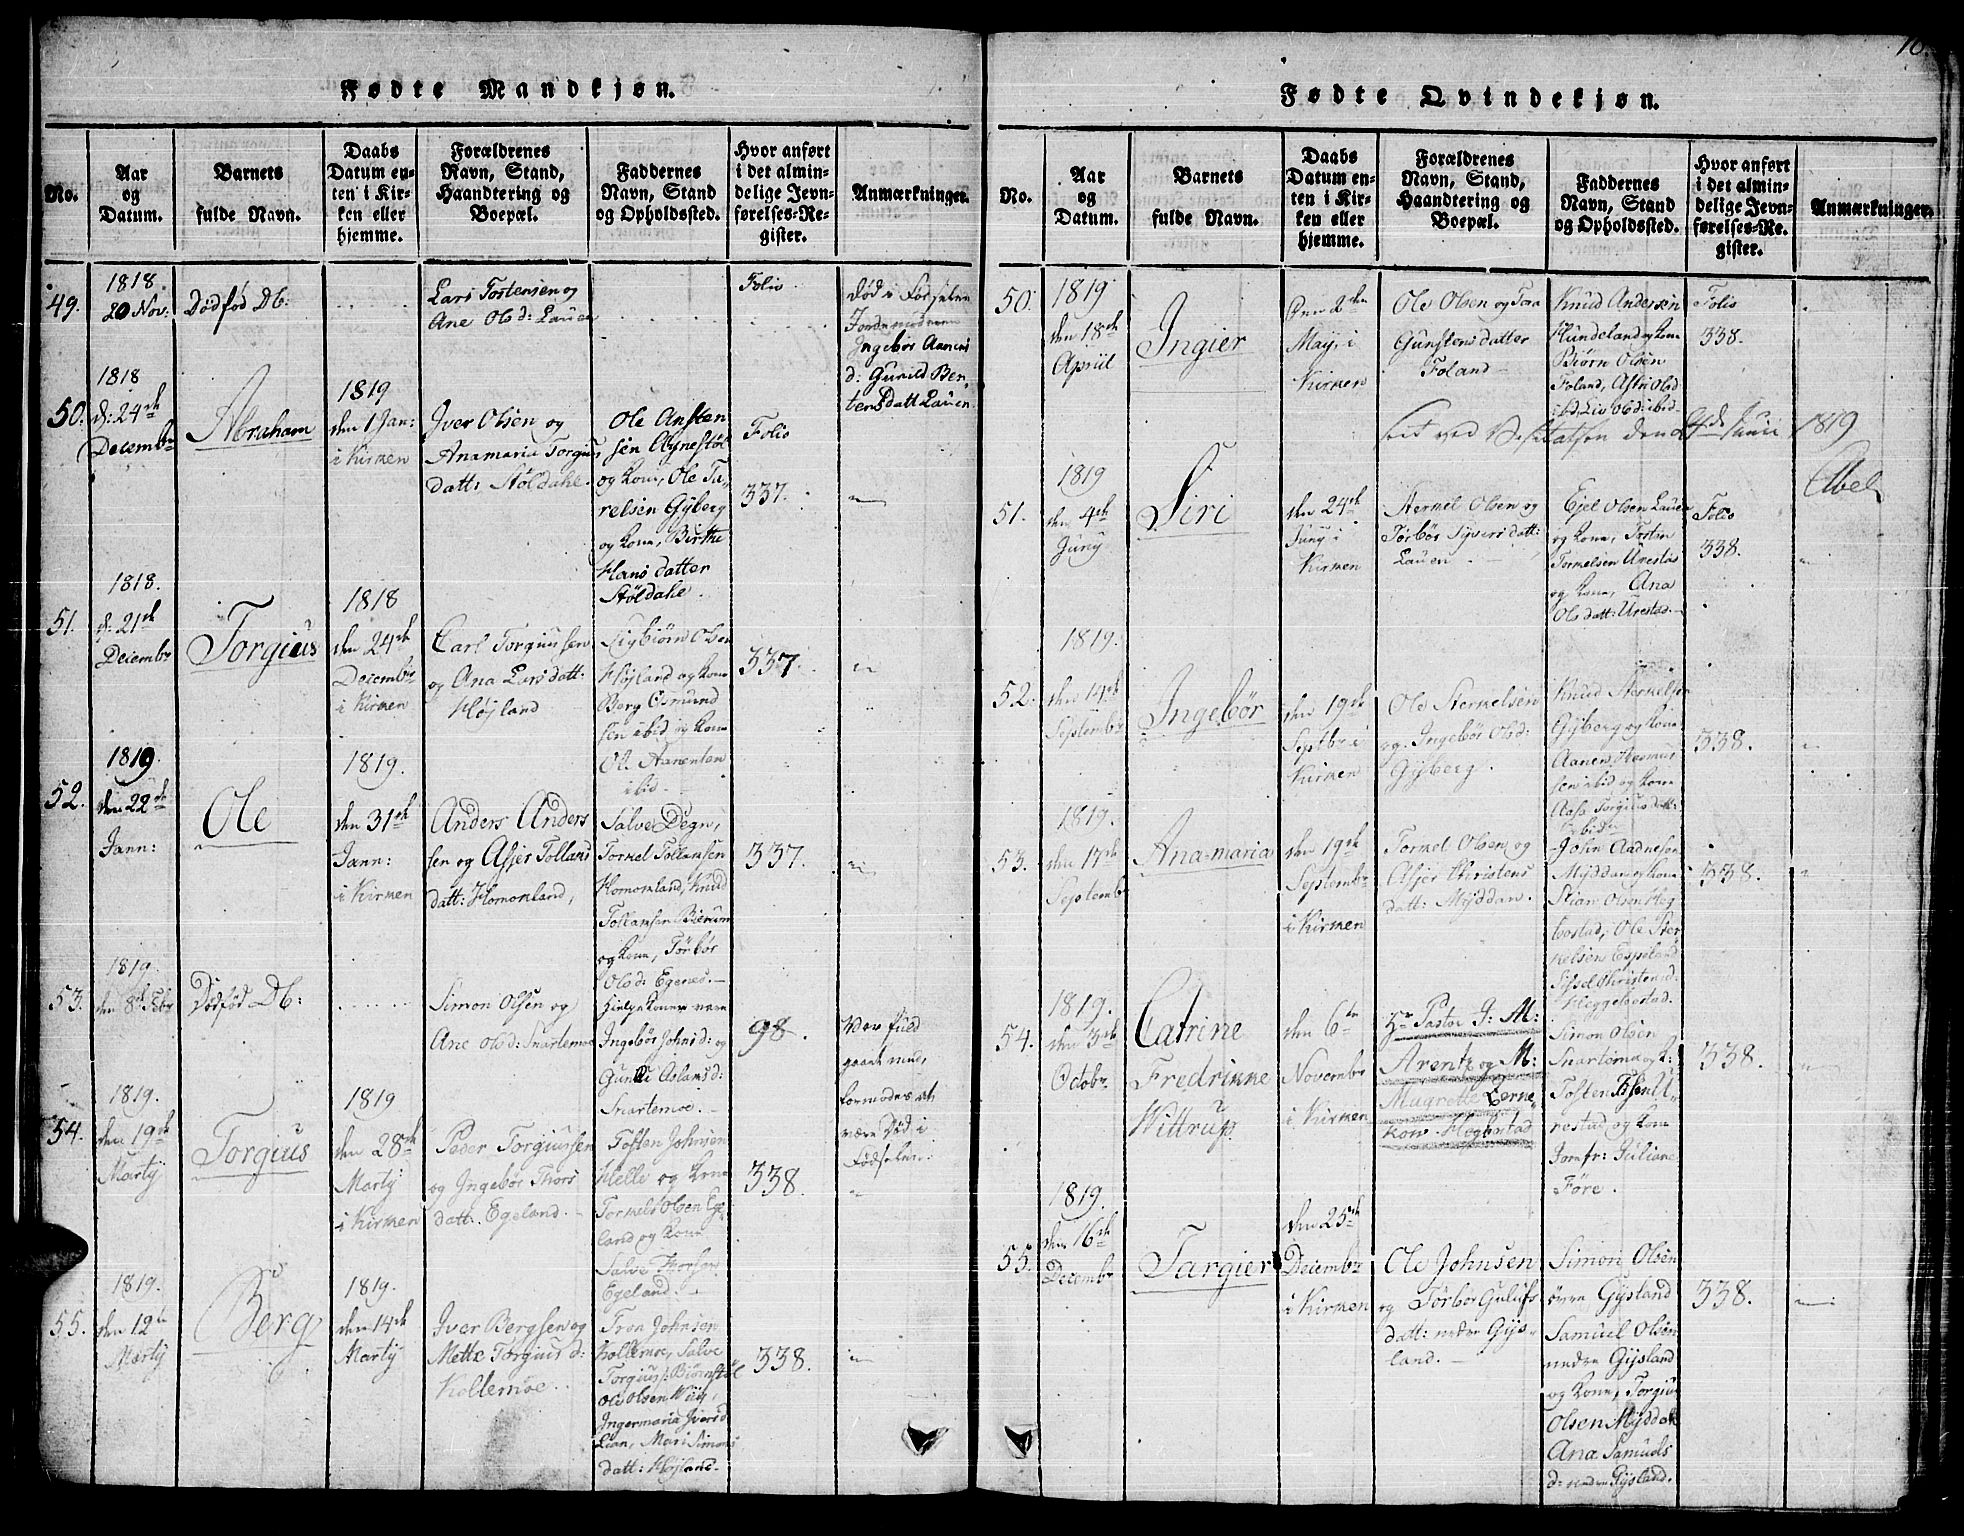 10.
Fødte Mandkjøn.
No.
Aar
og
Datum.
Barnets
fulde Navn.
Daabs
Datum en-
ten i Kir-
ken eller
hjemme.
Forældrenes
Navn, Stand,
Haandtering og
Boepæl.
Faddernes
Navn, Stand
og Opholdssted.
Hvor anført
i det almin-
delige Jevn-
førelses-Re-
gister.
Anmærkninger.
49.
1818.
20 Nov:
Dødfød Db:
Lars Tostensen og
Ane Olsd: Lauen
Folio
Død i Fødselen
Jordemødrene
Ingebør Aanens
d: Gunild Ben-
tensdatt Lauen
50.
1818
d: 24de
Decembr
Abraham
1819
den 1 Jan:
i Kirken
Iver Olsen og
Anamaria Torgius
datt: Stöldahl.
Ole Ansten
sen
og Kone, Ole Ta-
relsen Gÿberg
og Kone, Birthe
Hans datter
Stöldahl.
Folio
337.
51.
1818.
d: 21de
Decembr
Torgius
1818
den 24de
Decembr
i Kirken
Carl Torgiussen
og Ana Larsdatt:
Højland
Sigbiörn Olsen
Højland og Kone
Berg Osmund
sen ibid og Kone
Ol. Aanensen
ibid.
337.
52.
1819.
den 22de
Jann:
Ole
1819.
den 31de
Jann:
i Kirken
Anders Anders
sen og Asjer Tolland
datt: Homomland,
Salve Degn,
Tormel Tollamsen
Homomland, Knud
Tollamsen Bierum
og Kone, Törbör
Olsd: Egenes.
53.
1819.
den 8de Febr
Dødfød Db:
Simon Olsen og
Ane Olsd: Snartemoe
Hielpekoner vare
Ingebör Johnsd: og
Gunild Aslamsd:
Snartemoe.
98.
Var fuld
gaaet med,
formodes at
være Död i
Födselen.
54.
1819.
den 19de
Martÿ
Torgius
1819
den 28de
Martÿ
i Kirken
Peder Torgiussen
og Ingebör Thors
datt: Egeland.
Tosten Johnsen
Helle og Kone
Tormels Olsen Ege
land og Kone
Salve Thorsen
Egeland.
338.
55.
1819.
den 12te
Martÿ
Berg
1819.
den 14de
Martÿ
Iver Bergsen og
Mette Torgius d:
Kollemoe.
Tron Johnsen
Kollemoe, Salve
Torgius: Biörnstöl
Ole Olsen
Ingermaria Iversd
Lian, Mari Simons
datt: Højland.
338.
Fødte Qvindekjøn.
No.
Aar
og
Datum.
Barnets
fulde Navn.
Daabs
Datum en-
ten i Kir-
ken eller
hjemme.
Forældrenes
Navn, Stand,
Haandtering og
Boepæl.
Faddernes
Navn, Stand
og Opholdssted.
Hvor anført
i det almin-
delige Jevn-
førelses-Re-
gister.
Anmærkninger.
50.
1819
den 18de
Apriil
Ingier
Den 2den
May, i
Kirken
Ole Olsen og Tora
Gunstensdatter
Foland
Knud Andersen
Hundeland og Kone
Biörn Olsen
Foland, Astri Olsd
ibd, Liv Olsd: ibid
Folio
338.
Seet ved Visitatsen den 4de Junii 1819
Abel
51.
1819
den 4de
Junÿ
Siri
den 24de
Junÿ i
Kirken
Sterkel Olsen og
Törbör Syversdatt:
Lauen.
Ejel Olsen Lauen
og Kone, Tosten
Tormelsen Urestad
og Kone, Ana
Olsdatt: Urestad.
Folio
338.
52.
1819.
den 14de
Septembr
Ingebör
den 19de
Septbr i
Kirken
Ole Sterkelsen
og Ingebör Olsd:
Gÿberg.
Knud Sterkelsen
Gÿberg og Kone
Aanen Rasmus
sen ibid og Kone
Aasa Torgiusdatt:
ibid:
338.
53.
1819.
den 17de
Septembr
Ana-maria
den 19de
Septembr
i Kirken
Tormel Olsen og
Asjer Christens
datt: Mÿddan.
John Aadnesen
Mÿddan og Kone
Stian Olsen Heg-
bostad, Ole Ster
kelsen Espeland
Sissel Christensd:
Heggebostad.
338.
54.
1819.
den 3de
Octobr
Catrine
Fredrikke
Wittrup
den 6te
Novembr
i Kirken
Hr Pastor J: M:
Arentz og M:
Magrette Lerne-
kow Hegbstad
Simon Olsen
Snartemo og K:
Tosten Eilsen U-
restad og Kone
Jomfr: Juliane
Före.
338.
55.
1819.
den 16de
Decembr
Targier
den 25de
Decembr
i Kirken
Ole Johnsen
og Törbör Gulufs
datt: nedre Gÿs-
land.
Simon Olsen
övre Gÿsland
Samuel Olsen
nedre Gÿsland
og Kone, Torgius
Olsen Mÿddan
Ana Samuels
d: nedre Gÿsland.
338.